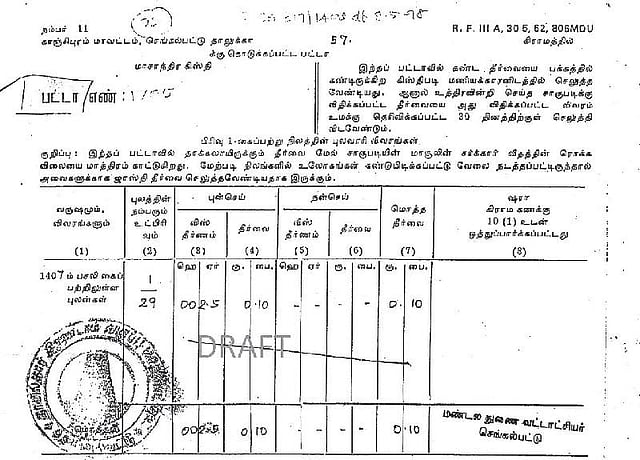 நம்பர் 11
R. F. III A, 30 5, 62, 806MDU
காஞ்சிபுரம் மாவட்டம், செங்கல்பட்டு தாலுக்கா
57.
கிராமத்தில்
க்கு கொடுக்கப்பட்ட பட்டா
மாசாந்திர கிஸ்தி
பட்டா எண் :
இந்தப் பட்டாவில் கண்ட தீர்வையை பக்கத்தில்
கண்டிருக்கிற கிஸ்திபடி மணியக்காரனிடத்தில் செலுத்த
வேண்டியது. ஆனால் உத்திரவின்றி செய்த சாகுபடிக்கு
விதிக்கப்பட்ட தீர்வையை அது விதிக்கப்பட்ட விவரம்
உமக்கு தெரிவிக்கப்பட்ட 30 தினத்திற்குள் செலுத்தி
விடவேண்டும்.
பிரிவு 1-கைப்பற்று நிலத்தின் புலவாரி விவரங்கள்
குறிப்பு : இந்தப் பட்டாவில் தாக்கலாயிருக்கும் தீர்வை மேல் சாகுபடியின் மாருலின் சர்க்கார் விதத்தின் ரொக்க
விலையை மாத்திரம் காட்டுகிறது. மேற்படி நிலங்களில் உலோகங்கள் கண்டுபிடிக்கப்பட்டு வேலை நடத்தப்பட்டிருந்தால்
அவைகளுக்காக ஜாஸ்தி தீர்வை செலுத்தவேண்டியதாக இருக்கும்.
வருஷமும், விவரங்களும்
புலத்தின் நம்பரும் உட்பிரிவும்
புன்செய்
நன்செய்
மொத்த தீர்வை
ஷரா
கிராம கணக்கு
10 (1) உடன்
ஒத்துப்பார்க்கப்பட்டது
விஸ்தீர்ணம் தீர்வை வீஸ்தீர்ணம் தீர்வை
(1) (2) (3) (4) (5) (6) (7) (8)
ஹெ ஏர் ரூ. பை. ஹெ ஏர் ரூ. பை. ரூ. பை.
1407ம் பசலி கைப்
பற்றிலுள்ள
புலன்கள்
1
29
00 2.5 0 10 - - - - 0 10
DRAFT
00 2.5 0 10 - - - - 0 10
மண்டல துணை வட்டாட்சியர்
செங்கல்பட்டு